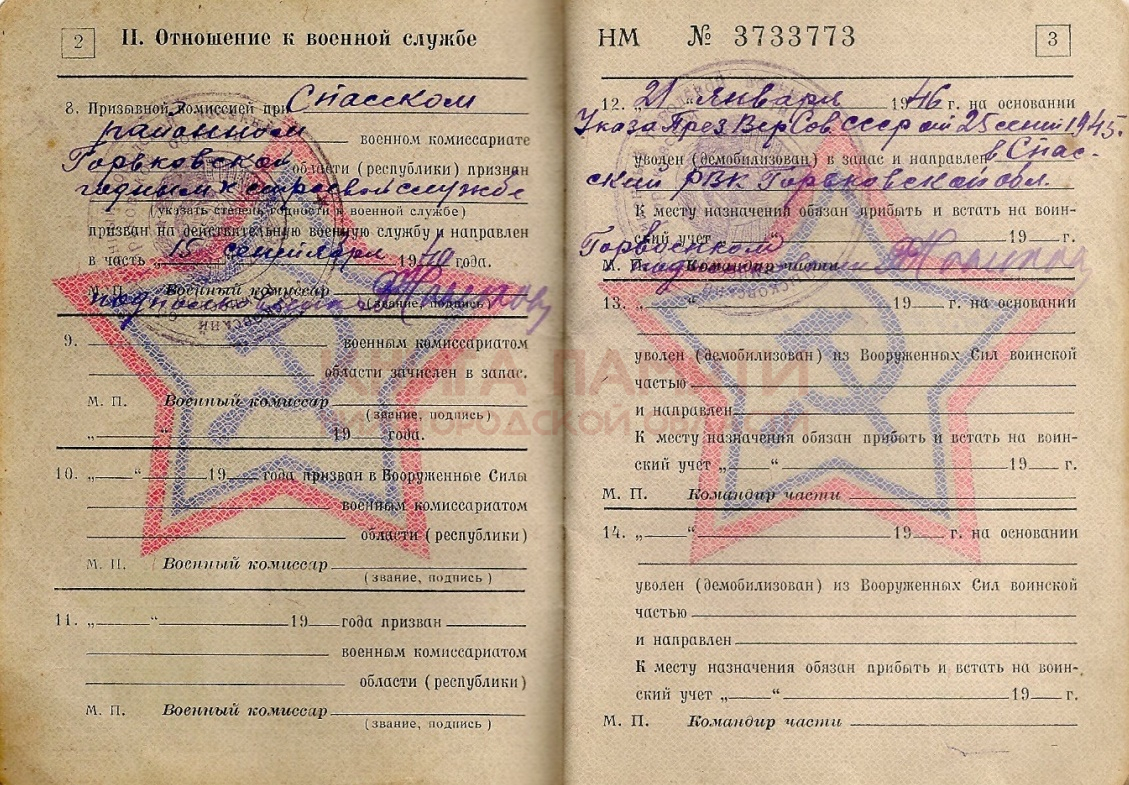 2
II. Отношение к военной службе
8. Призывной комиссией при Спасском
районном военном комиссариате
Горьковской области (республики) признан
годным к строевой службе
(указать степень годности к военной службе)
призван на действительную военную службу и направлен
в часть 15 сентября 1940 года.
М. П. Военный комиссар
(звание, подпись)
9. военным комиссариатом
области зачислен в запас.
М. П. Военный комиссар
(звание, подпись)
„ “ 19 года.
10. „ “ 19 года призван в Вооруженные Силы
военным комиссариатом
области (республики)
М. П. Военный комиссар
(звание, подпись)
11. „ “ 19 года призван
военным комиссариатом
области (республики)
М. П. Военный комиссар
(звание, подпись)
НМ № 3733773
3
12. „21“ января 1946 г. на основании
Указа През Вер Сов СССР от 25 сент 1945.
уволен (демобилизован) в запас и направлен в Спас-
ский РВК Горьковской обл.
К месту назначения обязан прибыть и встать на воин-
ский учет “ 19 г.
Горвоенком
М. П. Командир части
13. „ “ 19 г. на основании
уволен (демобилизован) из Вооруженных Сил воинской
частью
и направлен
К месту назначения обязан прибыть и встать на воин-
ский учет „ “ 19 г.
М. П. Командир части
14. „ “ 19 г. на основании
уволен (демобилизован) из Вооруженных Сил воинской
частью
и направлен
К месту назначения обязан прибыть и встать на воин-
ский учет „ “ 19 г.
М. П. Командир части
КНИГА ПАМЯТИ
НИЖЕГОРОДСКОЙ ОБЛАСТИ